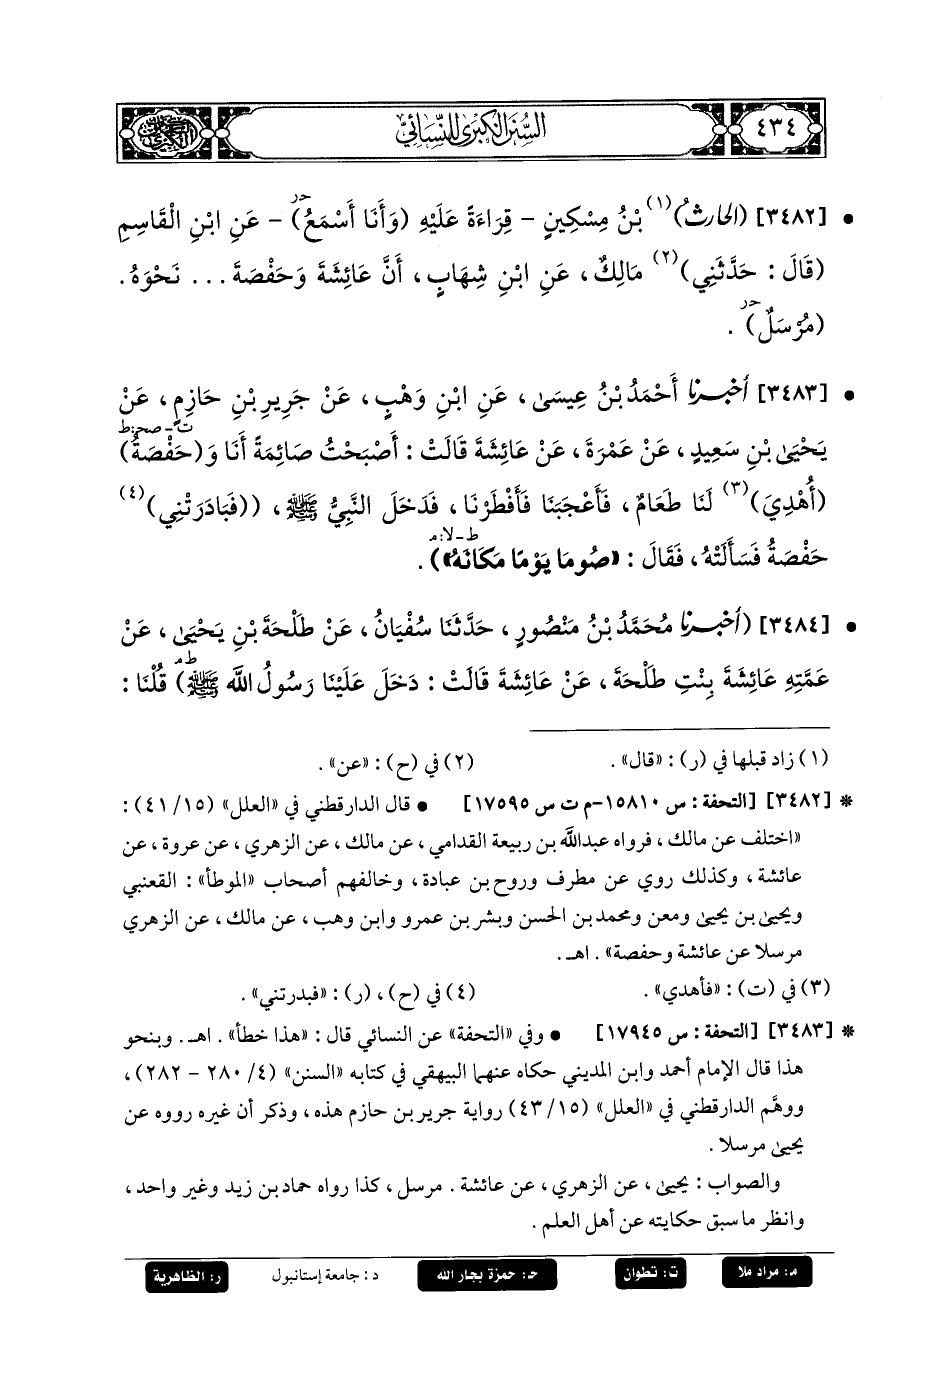 ٤٣٤
السُّنَنُ الْكُبْرَى لِلنَّسَائِيِّ
• [٣٤٨٢] (الحَارِثُ)(١) بْنُ مِسْكِينٍ - قِرَاءَةً عَلَيْهِ (وَأَنَا أَسْمَعُ) - عَنِ ابْنِ الْقَاسِمِ
(قَالَ: حَدَّثَنِي)(٢) مَالِكٌ، عَنِ ابْنِ شِهَابٍ، أَنَّ عَائِشَةَ وَحَفْصَةَ... نَحْوَهُ.
(مُرْسَلٌ).
• [٣٤٨٣] أَخْبَرَنَا أَحْمَدُ بْنُ عِيسَى، عَنِ ابْنِ وَهْبٍ، عَنْ جَرِيرِ بْنِ حَازِمٍ، عَنْ
يَحْيَى بْنِ سَعِيدٍ، عَنْ عَمْرَةَ، عَنْ عَائِشَةَ قَالَتْ: أَصْبَحْتُ صَائِمَةً أَنَا وَ(حَفْصَةُ)
(أُهْدِيَ)(٣) لَنَا طَعَامٌ، فَأَعْجَبَنَا فَأَفْطَرْنَا، فَدَخَلَ النَّبِيُّ ﷺ، ((فَبَادَرَتْنِي)(٤)
حَفْصَةُ فَسَأَلَتْهُ، فَقَالَ: «صُومَا يَوْمًا مَكَانَهُ»).
• [٣٤٨٤] (أَخْبَرَنَا مُحَمَّدُ بْنُ مَنْصُورٍ، حَدَّثَنَا سُفْيَانُ، عَنْ طَلْحَةَ بْنِ يَحْيَى، عَنْ
عَمَّتِهِ عَائِشَةَ بِنْتِ طَلْحَةَ، عَنْ عَائِشَةَ قَالَتْ: دَخَلَ عَلَيْنَا رَسُولُ اللَّهِ ﷺ) قُلْنَا:
(١) زاد قبلها في (ر): «قال». (٢) في (ح): «عن».
* [٣٤٨٢] [التحفة: س ١٥٨١٠-م ت س ١٧٥٩٥] • قال الدارقطني في «العلل» (١٥/ ٤١):
«اختلف عن مالك، فرواه عبدالله بن ربيعة القدامي، عن مالك، عن الزهري، عن عروة، عن
عائشة، وكذلك روي عن مطرف وروح بن عبادة، وخالفهم أصحاب «الموطأ»: القعنبي
ويحيى بن يحيى ومعن ومحمد بن الحسن وبشر بن عمرو وابن وهب، عن مالك، عن الزهري
مرسلا عن عائشة وحفصة». اهـ.
(٣) في (ت): «فأهدي». (٤) في (ح)، (ر): «فبدرتني».
* [٣٤٨٣] [التحفة: س ١٧٩٤٥] • وفي «التحفة» عن النسائي قال: «هذا خطأ». اهـ. وبنحو
هذا قال الإمام أحمد وابن المديني حكاه عنهما البيهقي في كتابه «السنن» (٤/ ٢٨٠ - ٢٨٢)،
ووهَّم الدارقطني في «العلل» (١٥/ ٤٣) رواية جرير بن حازم هذه، وذكر أن غيره رووه عن
يحيى مرسلا.
والصواب: يحيى، عن الزهري، عن عائشة. مرسل، كذا رواه حماد بن زيد وغير واحد،
وانظر ما سبق حكايته عن أهل العلم.
م: مراد ملا ت: تطوان ح: حمزة بجار الله د: جامعة إستانبول ر: الظاهرية